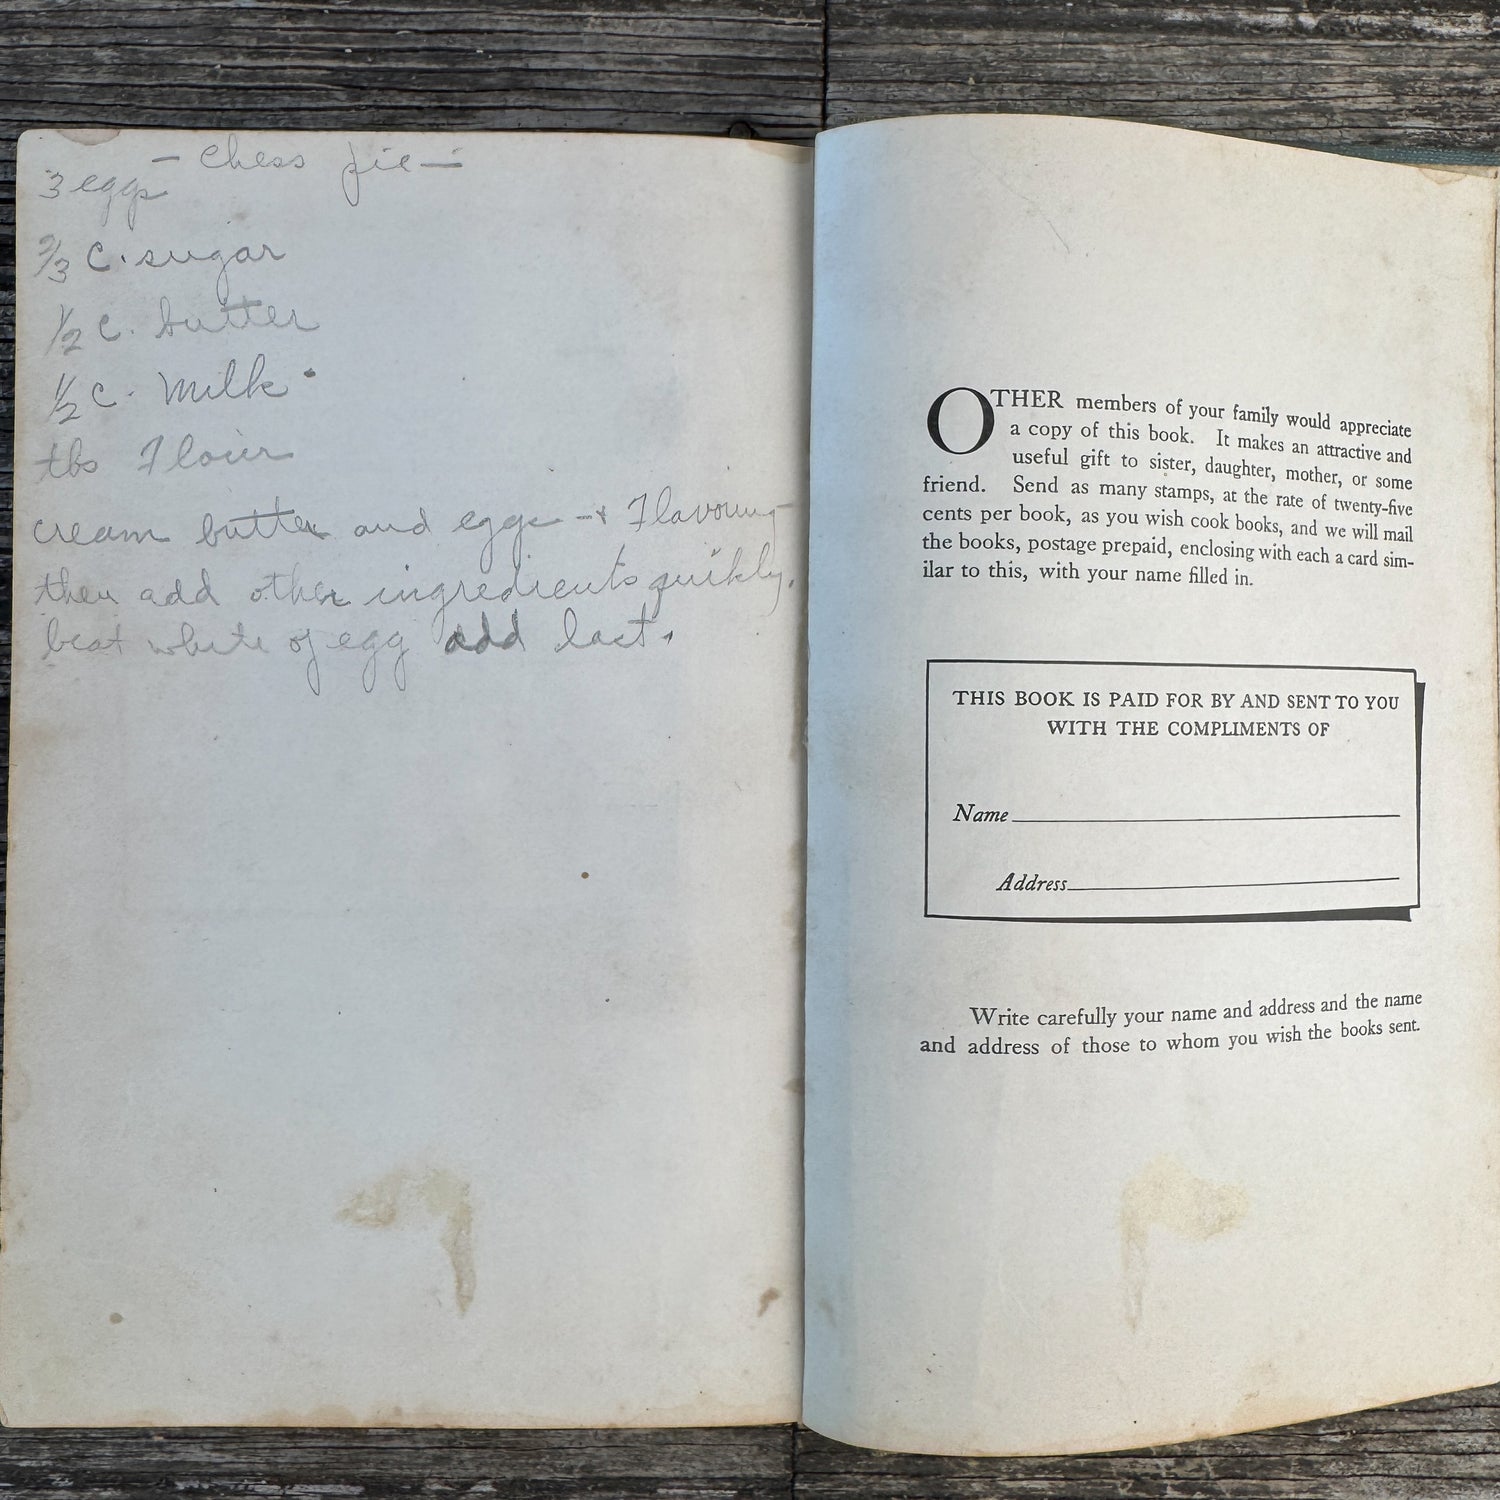 - Chess pie -
3 eggs
2/3 C. sugar
1/2 C. butter
1/2 C. Milk.
tbs Flour
cream butter and eggs - + Flavouring
then add other ingredients quikly.
beat white of egg add last.
OTHER members of your family would appreciate
a copy of this book. It makes an attractive and
useful gift to sister, daughter, mother, or some
friend. Send as many stamps, at the rate of twenty-five
cents per book, as you wish cook books, and we will mail
the books, postage prepaid, enclosing with each a card sim-
ilar to this, with your name filled in.
THIS BOOK IS PAID FOR BY AND SENT TO YOU
WITH THE COMPLIMENTS OF
Name
Address
Write carefully your name and address and the name
and address of those to whom you wish the books sent.